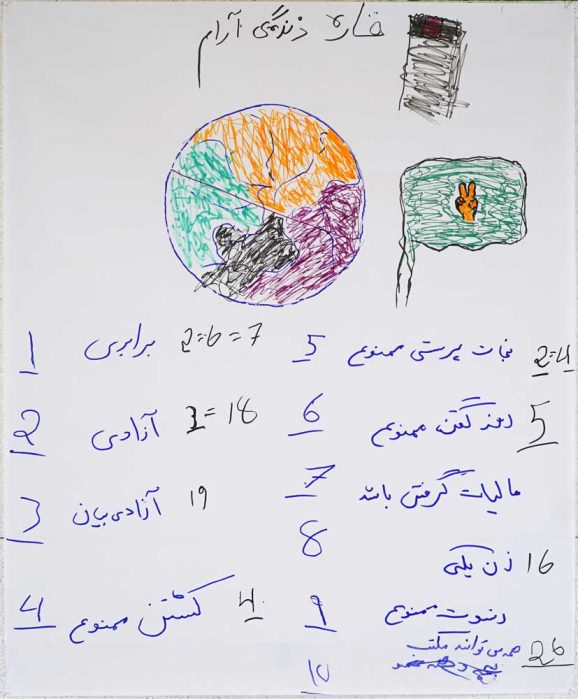 قاره زندگی آرام
1 برابری 2=6=7
2 آزادی 1=18
3 آزادی بیان 19
4 کشتن ممنوع 4
5 ممنوع پرستی 2=4
6 ممنوع 5
7 مالیات گرفتن باشد
8 زن یکی 16
9 رشوت ممنوع
10 همه می‌توانند مکتب 26